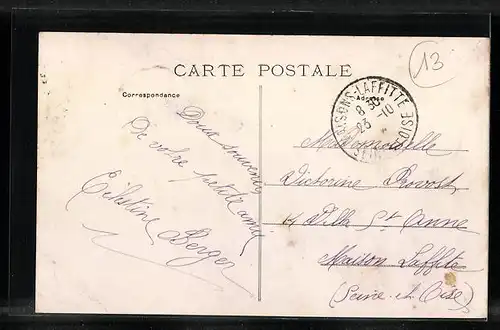 13
CARTE POSTALE
Correspondance
Adresse
MAISONS-LAFFITTE
8 30
23 - 10
SEINE-ET-OISE
Doux souvenir
De votre petite amie
Célestine Berger
Mademoiselle
Victorine Provost
14 Villa St Anne
Maison Laffite
(Seine et Oise)